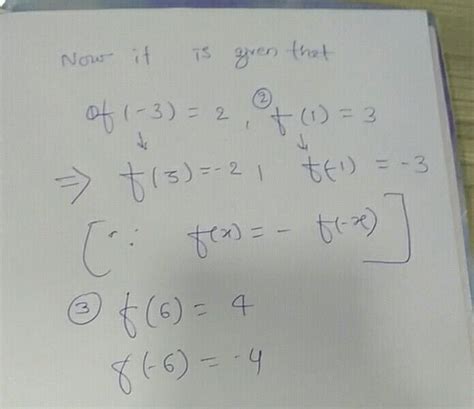 Now it is given that
① f(-3) = 2, ② f(1) = 3
↓ ↓
⇒ f(3) = -2, f(-1) = -3
[∵ f(x) = - f(-x)]
③ f(6) = 4
f(-6) = -4